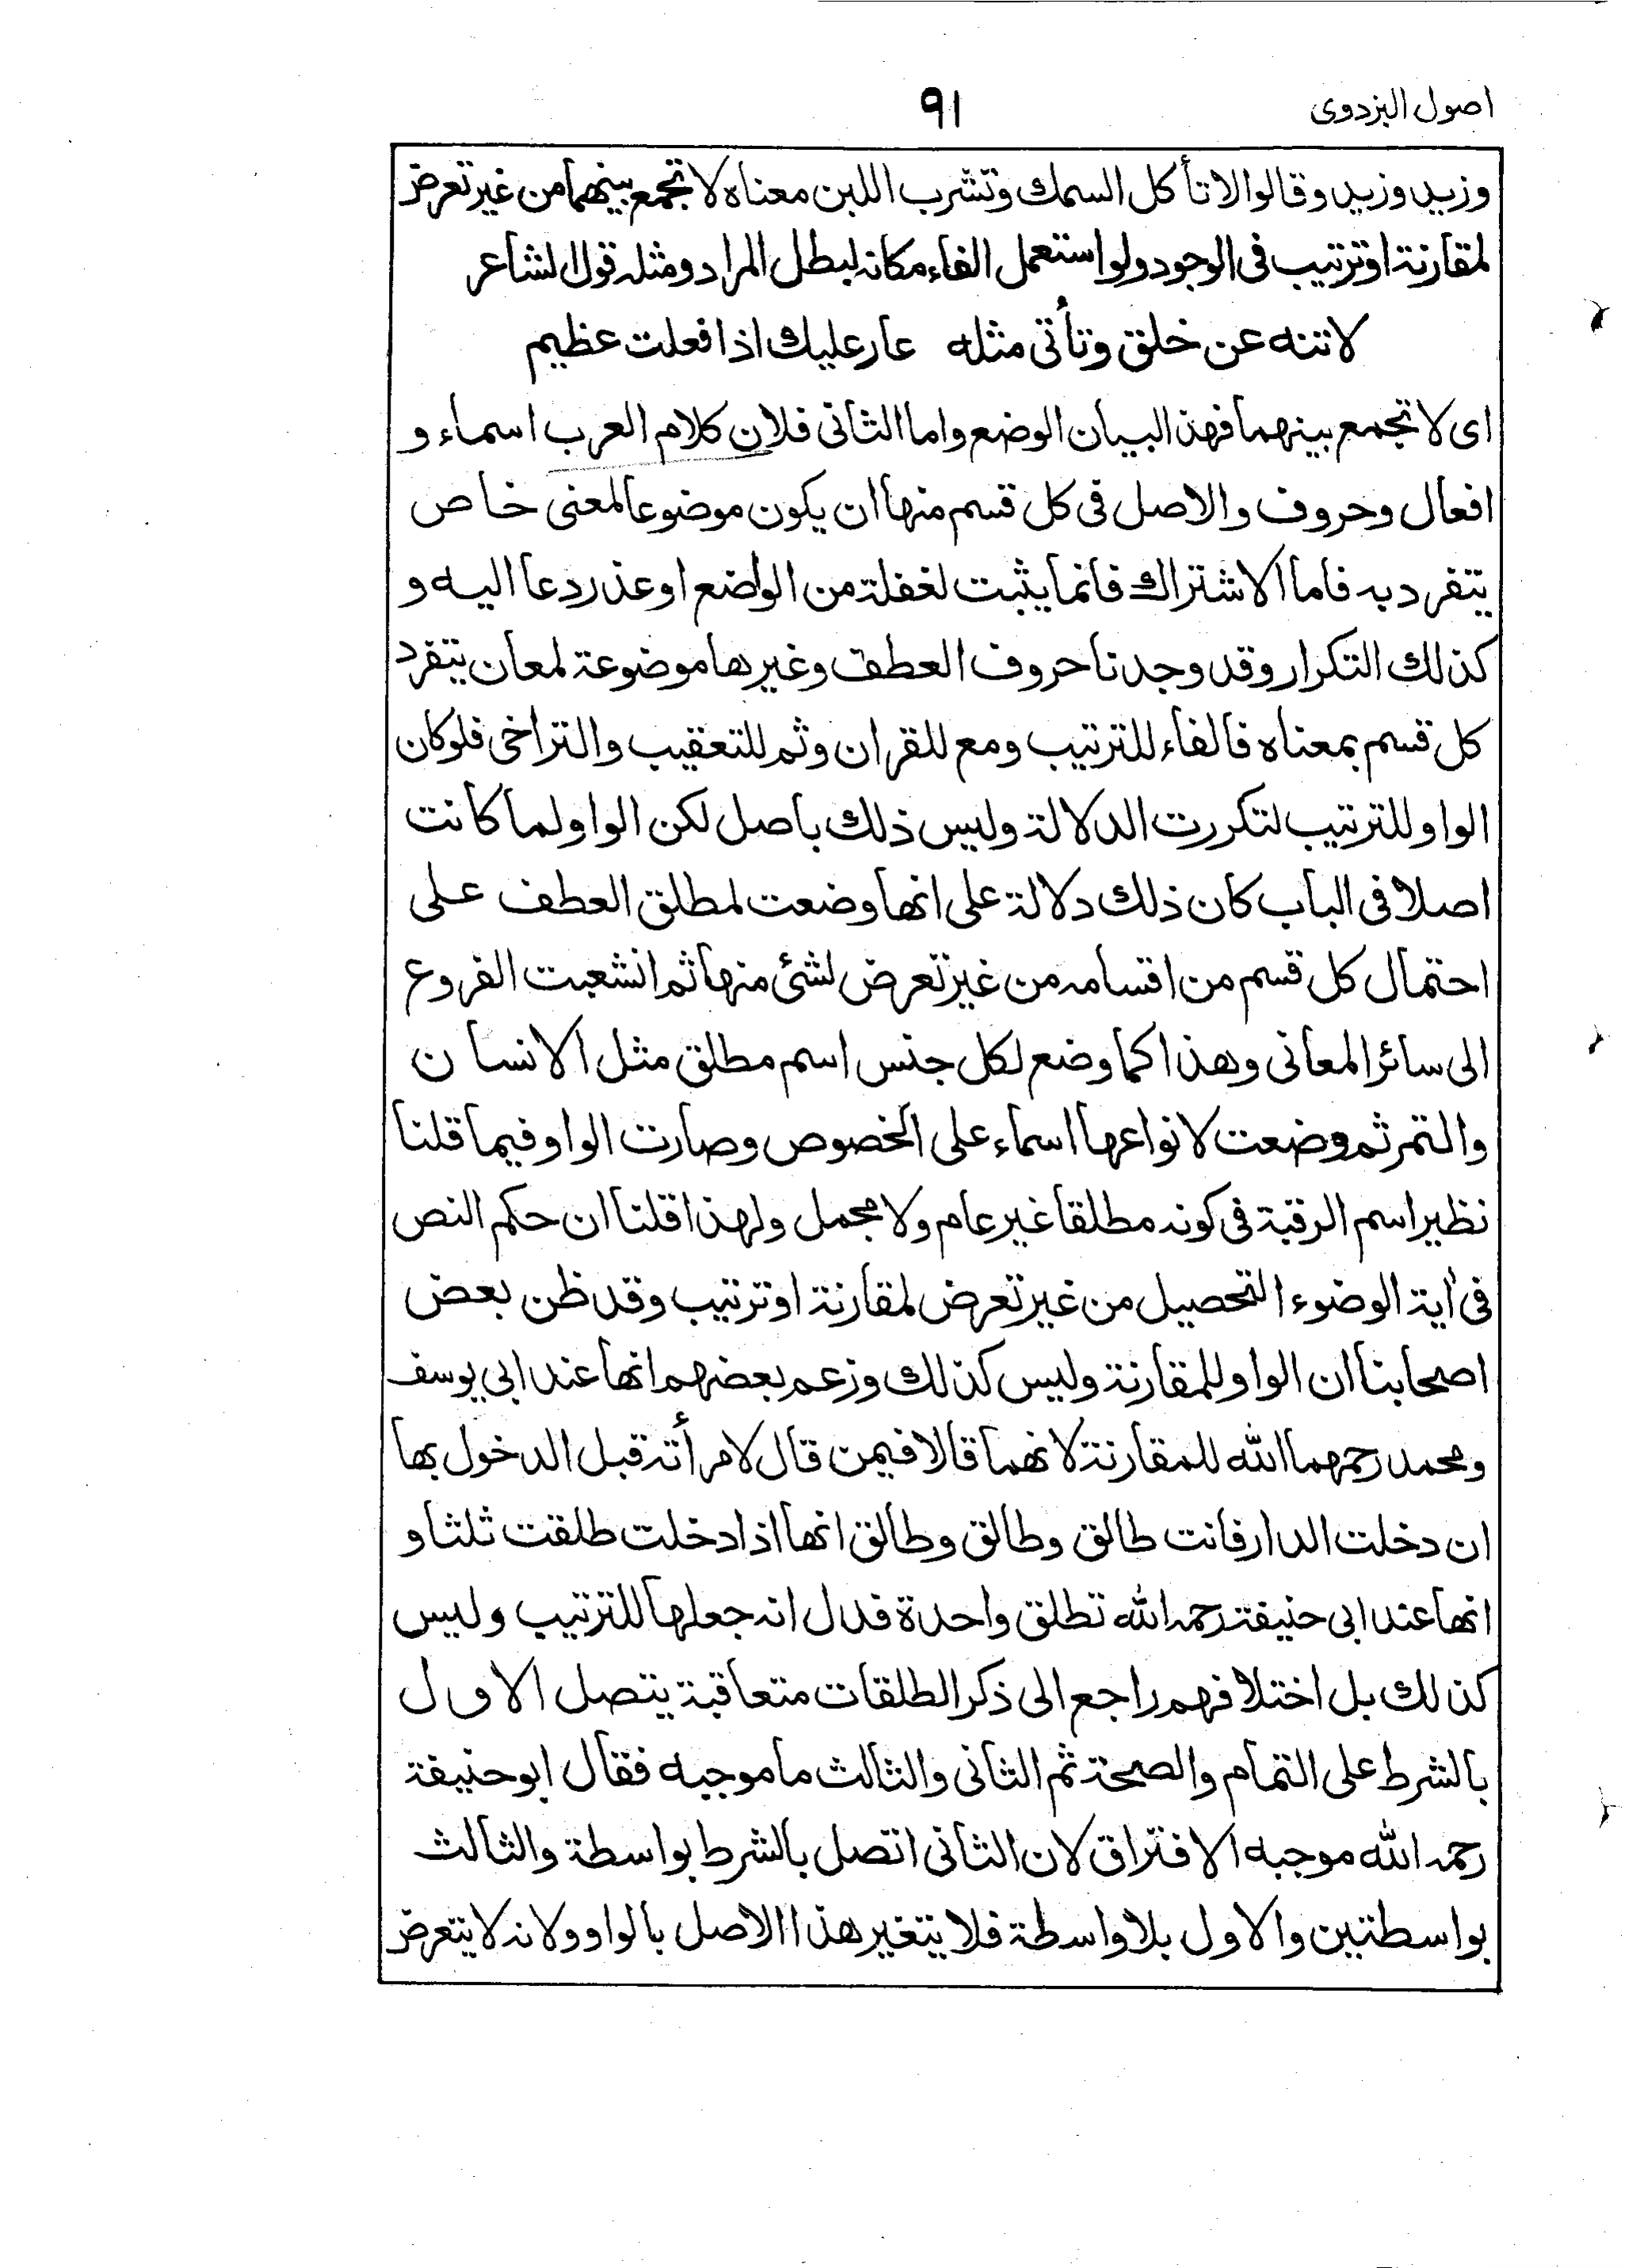 اصول البزدوى ٩١
وزيد وزيد وقالوا لا تأكل السمك وتشرب اللبن معناه لا تجمع بينهما من غير تعرض
لمقارنة او ترتيب فى الوجود ولو استعمل الفاء مكانه لبطل المراد ومثله قول الشاعر
لا تنه عن خلق وتأتى مثله عار عليك اذا فعلت عظيم
اى لا تجمع بينهما فهذا لبيان الوضع واما الثانى فلان كلام العرب اسماء و
افعال وحروف والاصل فى كل قسم منها ان يكون موضوعا لمعنى خاص
يتفرد به فاما الاشتراك فانما يثبت لغفلة من الواضع او عذر دعا اليه و
كذلك التكرار وقد وجدنا حروف العطف وغيرها موضوعة لمعان يتفرد
كل قسم بمعناه فالفاء للترتيب ومع للقران وثم للتعقيب والتراخى فلو كان
الواو للترتيب لتكررت الدلالة وليس ذلك باصل لكن الواو لما كانت
اصلا فى الباب كان ذلك دلالة على انها وضعت لمطلق العطف على
احتمال كل قسم من اقسامه من غير تعرض لشئ منها ثم انشعبت الفروع
الى سائر المعانى وهذا كما وضع لكل جنس اسم مطلق مثل الانسان
والتمر ثم وضعت لانواعها اسماء على الخصوص وصارت الواو فيما قلنا
نظير اسم الرقبة فى كونه مطلقا غير عام ولا مجمل ولهذا قلنا ان حكم النص
فى أية الوضوء التحصيل من غير تعرض لمقارنة او ترتيب وقد ظن بعض
اصحابنا ان الواو للمقارنة وليس كذلك وزعم بعضهم انها عند ابي يوسف
ومحمد رحمهما الله للمقارنة لانهما قالا فيمن قال لامرأته قبل الدخول بها
ان دخلت الدار فانت طالق وطالق وطالق انها اذا دخلت طلقت ثلثا و
انها عند ابى حنيفة رحمه الله تطلق واحدة فدل انه جعلها للترتيب وليس
كذلك بل اختلافهم راجع الى ذكر الطلقات متعاقبة يتصل الاول
بالشرط على التمام والصحة ثم الثانى والثالث ما موجبه فقال ابو حنيفة
رحمه الله موجبه الافتراق لان الثانى اتصل بالشرط بواسطة والثالث
بواسطتين والاول بلا واسطة فلا يتغير هذا الاصل بالواو ولانه لا يتعرض